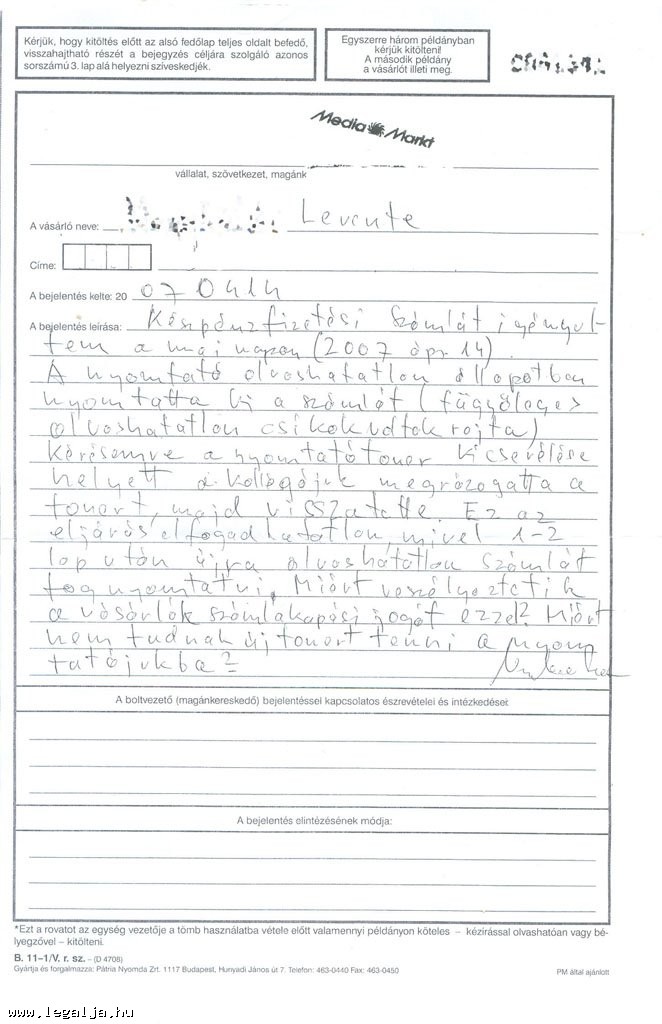 Kérjük, hogy kitöltés előtt az alsó fedőlap teljes oldalt befedő,
visszahajtható részét a bejegyzés céljára szolgáló azonos
sorszámú 3. lap alá helyezni sziveskedjék.
Egyszerre három példányban
kérjük kitölteni!
A második példány
a vásárlót illeti meg.
Media Markt
vállalat, szövetkezet, magánk
A vásárló neve: Levente
Címe:
A bejelentés kelte: 20 070414
A bejelentés leírása: Készpénzfizetési számlát igényel-
tem a mai napon (2007 ápr. 14).
A nyomtató olvashatatlan állapotban
nyomtatta ki a számlát (függőleges
olvashatatlan csíkok voltak rajta)
Kérésemre a nyomtató toner kicserélése
helyett a kollégájuk megrázogatta a
tonert, majd visszatette. Ez az
eljárás elfogadhatatlan, mivel 1-2
lap után újra olvashatatlan számlát
fog nyomtatni. Miért veszélyeztetik
a vásárlók számlakapási jogát ezzel? Miért
nem tudnak új tonert tenni a nyom
tatójukba?
A boltvezető (magánkereskedő) bejelentéssel kapcsolatos észrevételei és intézkedései:
A bejelentés elintézésének módja:
*Ezt a rovatot az egység vezetője a tömb használatba vétele előtt valamennyi példányon köteles – kézírással olvashatóan vagy bé-
lyegzővel – kitölteni.
B. 11–1/V. r. sz. – (D 4708)
Gyártja és forgalmazza: Pátria Nyomda Zrt. 1117 Budapest, Hunyadi János út 7. Telefon: 463-0440 Fax: 463-0450
PM által ajánlott
www.legalja.hu